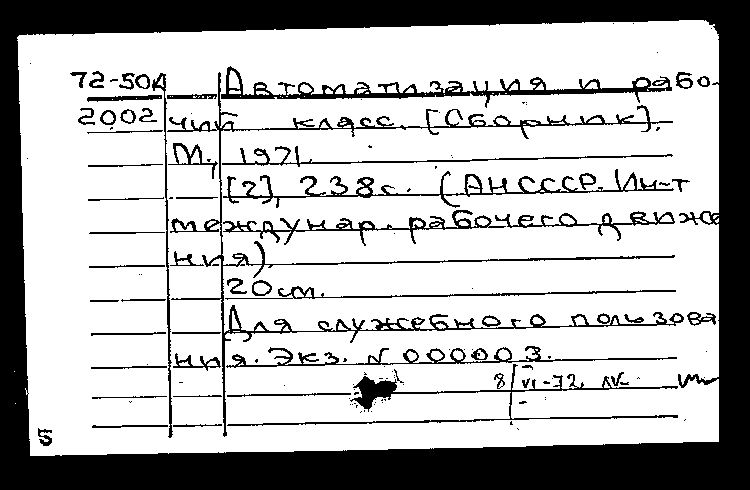 72-50А Автоматизация и рабо-
2002 чий класс. [Сборник].
М., 1971.
[2], 238с. (АН СССР. Ин-т
междунар. рабочего движе
ния).
20см.
Для служебного пользова
ния. Экз. N 000003.
8/VI-72.
5